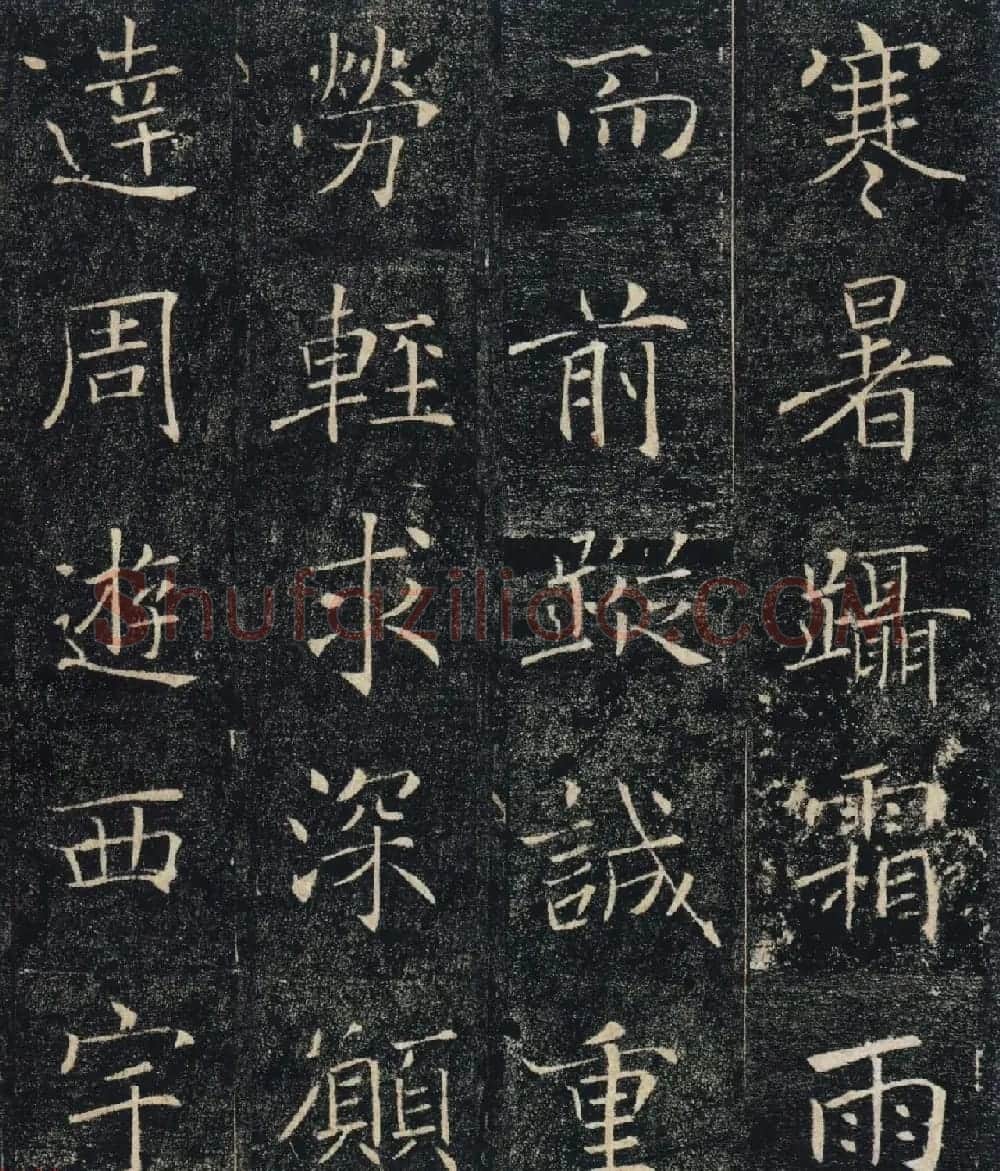 寒暑躡霜雨
而前蹤誠重
勞輕求深願
達周遊西宇
Shufazilidao.COM